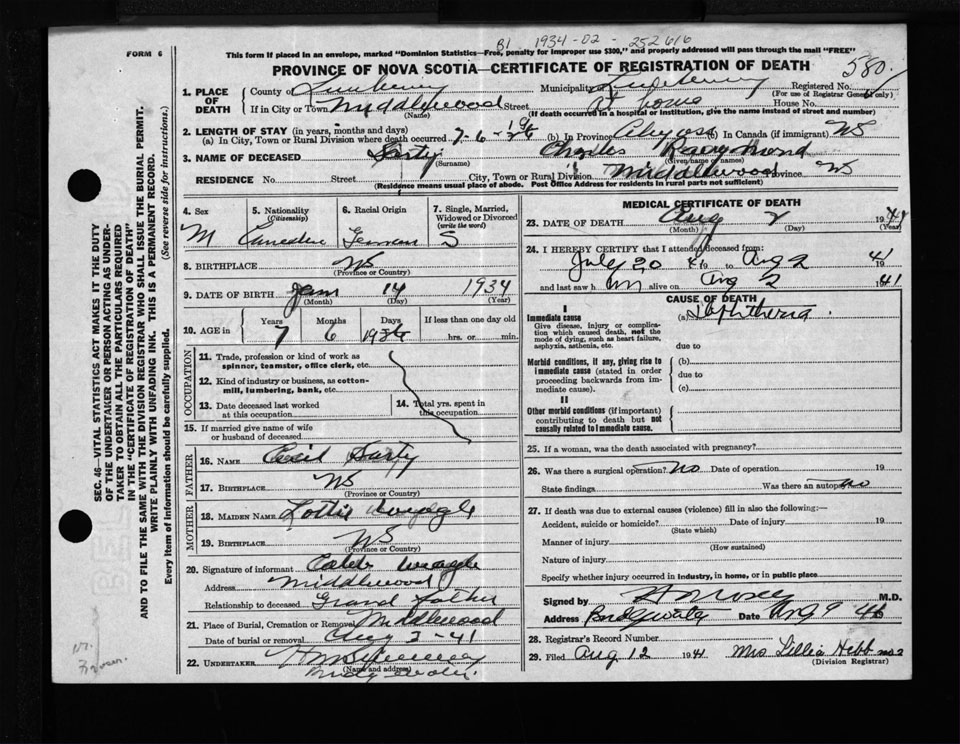 B1 1934-02-252616
FORM 6
This form if placed in an envelope, marked "Dominion Statistics—Free, penalty for improper use $300," and properly addressed will pass through the mail "FREE"
PROVINCE OF NOVA SCOTIA—CERTIFICATE OF REGISTRATION OF DEATH
580
1. PLACE OF DEATH
County of Lunenburg Municipality Lunenburg Registered No.
(For use of Registrar General only)
If in City or Town Middlewood Street At home House No.
(Name) (If death occurred in a hospital or institution, give the name instead of street and number)
2. LENGTH OF STAY (in years, months and days)
(a) In City, Town or Rural Division where death occurred 7-6-19 (b) In Province (c) In Canada (if immigrant) NS
3. NAME OF DECEASED Sarty Charles Raymond
(Surname) (Given name or names)
RESIDENCE No. Street City, Town or Rural Division Middlewood Province NS
(Residence means usual place of abode. Post Office Address for residents in rural parts not sufficient)
4. Sex
M
5. Nationality (Citizenship)
Canadian
6. Racial Origin
German
7. Single, Married, Widowed or Divorced (write the word)
S
8. BIRTHPLACE NS
(Province or Country)
9. DATE OF BIRTH Jan 14 1934
(Month) (Day) (Year)
10. AGE in Years Months Days If less than one day old
7 6 19 hrs. or min.
OCCUPATION
11. Trade, profession or kind of work as spinner, teamster, office clerk, etc.
12. Kind of industry or business, as cotton-mill, lumbering, bank, etc.
13. Date deceased last worked at this occupation
14. Total yrs. spent in this occupation
15. If married give name of wife or husband of deceased
FATHER
16. NAME Cecil Sarty
17. BIRTHPLACE NS
(Province or Country)
MOTHER
18. MAIDEN NAME Lottie
19. BIRTHPLACE NS
(Province or Country)
20. Signature of informant Caleb
Address Middlewood
Relationship to deceased Grand father
21. Place of Burial, Cremation or Removal Middlewood
Date of burial or removal Aug 3-41
22. UNDERTAKER
(Name and address)
MEDICAL CERTIFICATE OF DEATH
23. DATE OF DEATH Aug 2 1941
(Month) (Day) (Year)
24. I HEREBY CERTIFY that I attended deceased from:
July 20 41 to Aug 2 1941
and last saw him alive on Aug 2 1941
CAUSE OF DEATH
I
Immediate cause
Give disease, injury or complication which caused death, not the mode of dying, such as heart failure, asphyxia, asthenia, etc.
(a) Diphtheria.
due to
Morbid conditions, if any, giving rise to immediate cause (stated in order proceeding backwards from immediate cause).
(b)
due to
(c)
II
Other morbid conditions (if important) contributing to death but not causally related to immediate cause.
25. If a woman, was the death associated with pregnancy?
26. Was there a surgical operation? No Date of operation 19
State findings Was there an autopsy No
27. If death was due to external causes (violence) fill in also the following:—
Accident, suicide or homicide? Date of injury 19
(State which)
Manner of injury
(How sustained)
Nature of injury
Specify whether injury occurred in industry, in home, or in public place
Signed by M.D.
Address Bridgewater Date Aug 9
28. Registrar's Record Number
29. Filed Aug 12 1941 Mrs Lillia Hebb
(Division Registrar)
SEC. 46—VITAL STATISTICS ACT MAKES IT THE DUTY
OF THE UNDERTAKER OR PERSON ACTING AS UNDERTAKER TO OBTAIN ALL THE PARTICULARS REQUIRED
IN THE "CERTIFICATE OF REGISTRATION OF DEATH"
AND TO FILE THE SAME WITH THE DIVISION REGISTRAR WHO SHALL ISSUE THE BURIAL PERMIT.
WRITE PLAINLY WITH UNFADING INK. THIS IS A PERMANENT RECORD.
Every item of information should be carefully supplied. (See reverse side for instructions.)